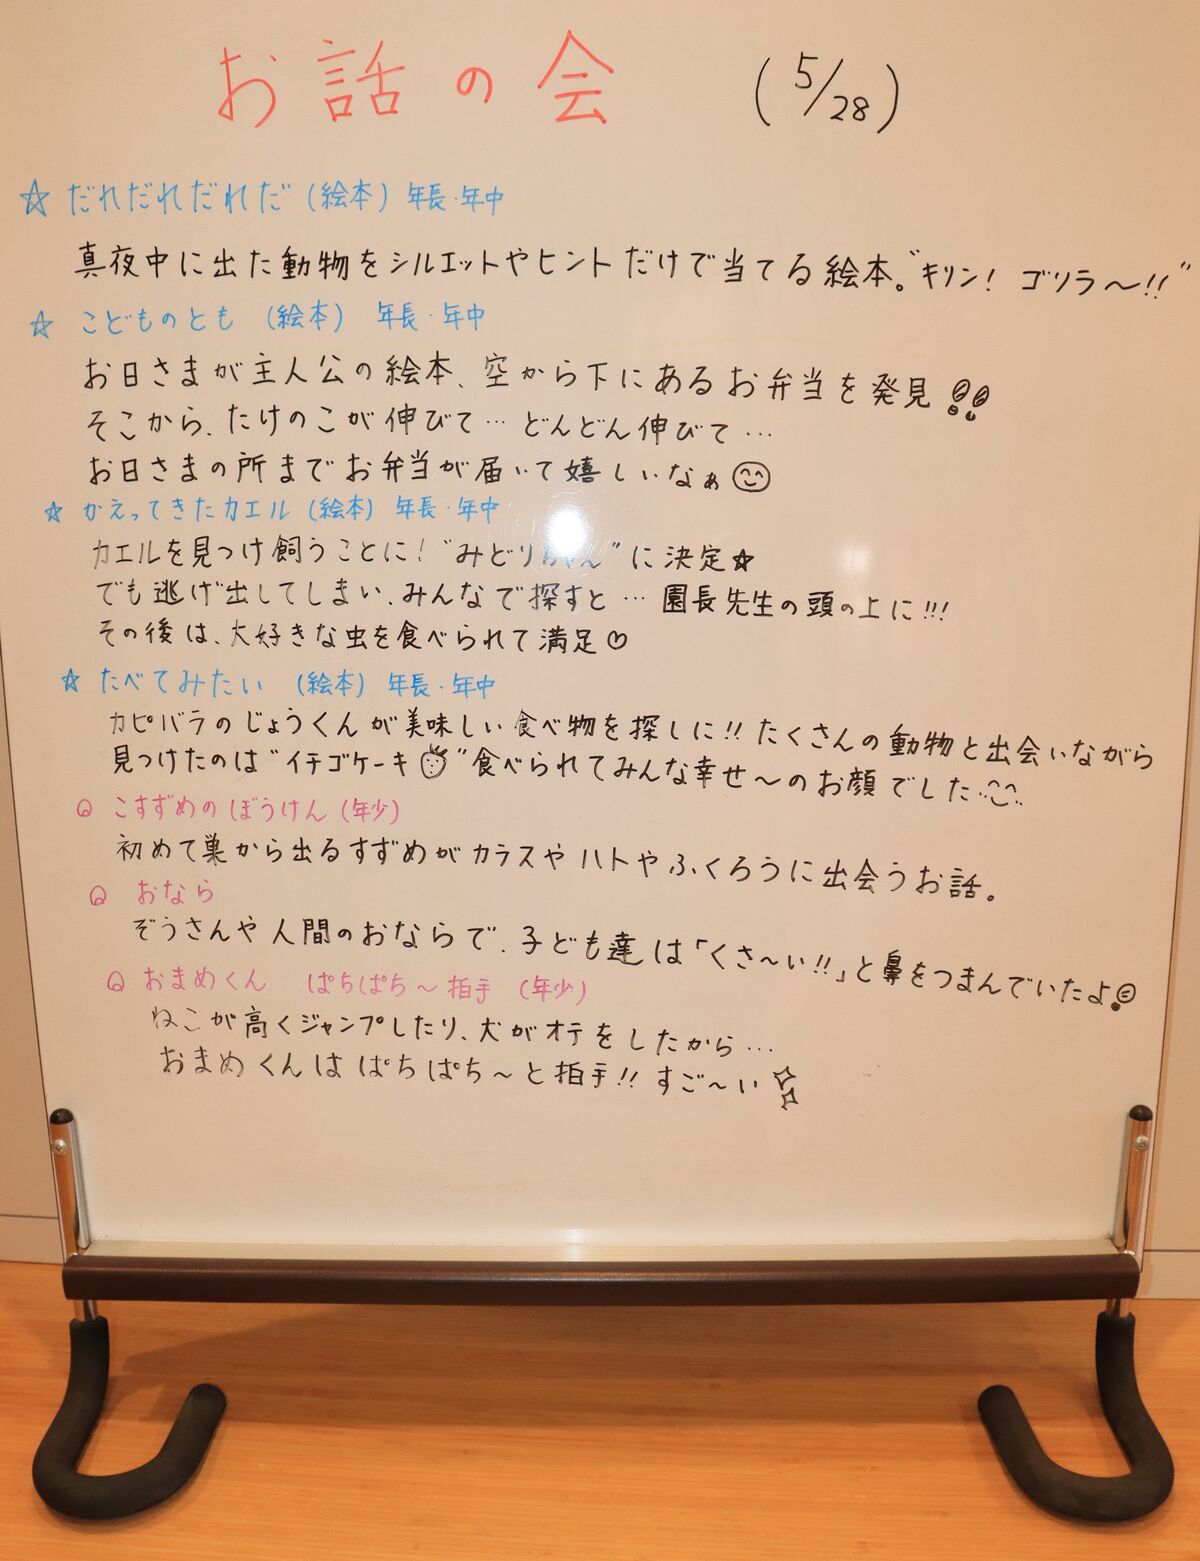 お話の会 (5/28)
☆ だれだれだれだ (絵本) 年長・年中
真夜中に出た動物をシルエットやヒントだけで当てる絵本。"キリン! ゴリラ〜!!"
☆ こどものとも (絵本) 年長・年中
お日さまが主人公の絵本、空から下にあるお弁当を発見!!
そこから、たけのこが伸びて… どんどん伸びて…
お日さまの所までお弁当が届いて嬉しいなぁ
☆ かえってきたカエル (絵本) 年長・年中
カエルを見つけ飼うことに! "みどりちゃん"に決定★
でも逃げ出してしまい、みんなで探すと… 園長先生の頭の上に!!!
その後は、大好きな虫を食べられて満足♡
☆ たべてみたい (絵本) 年長・年中
カピバラのじょうくんが美味しい食べ物を探しに!! たくさんの動物と出会いながら
見つけたのは"イチゴケーキ"食べられてみんな幸せ〜のお顔でした
Q こすずめのぼうけん (年少)
初めて巣から出るすずめがカラスやハトやふくろうに出会うお話。
Q おなら
ぞうさんや人間のおならで、子ども達は「くさ〜い!!」と鼻をつまんでいたよ!
Q おまめくん ぱちぱち〜拍手 (年少)
ねこが高くジャンプしたり、犬がオテをしたから…
おまめくんはぱちぱち〜と拍手!! すご〜い